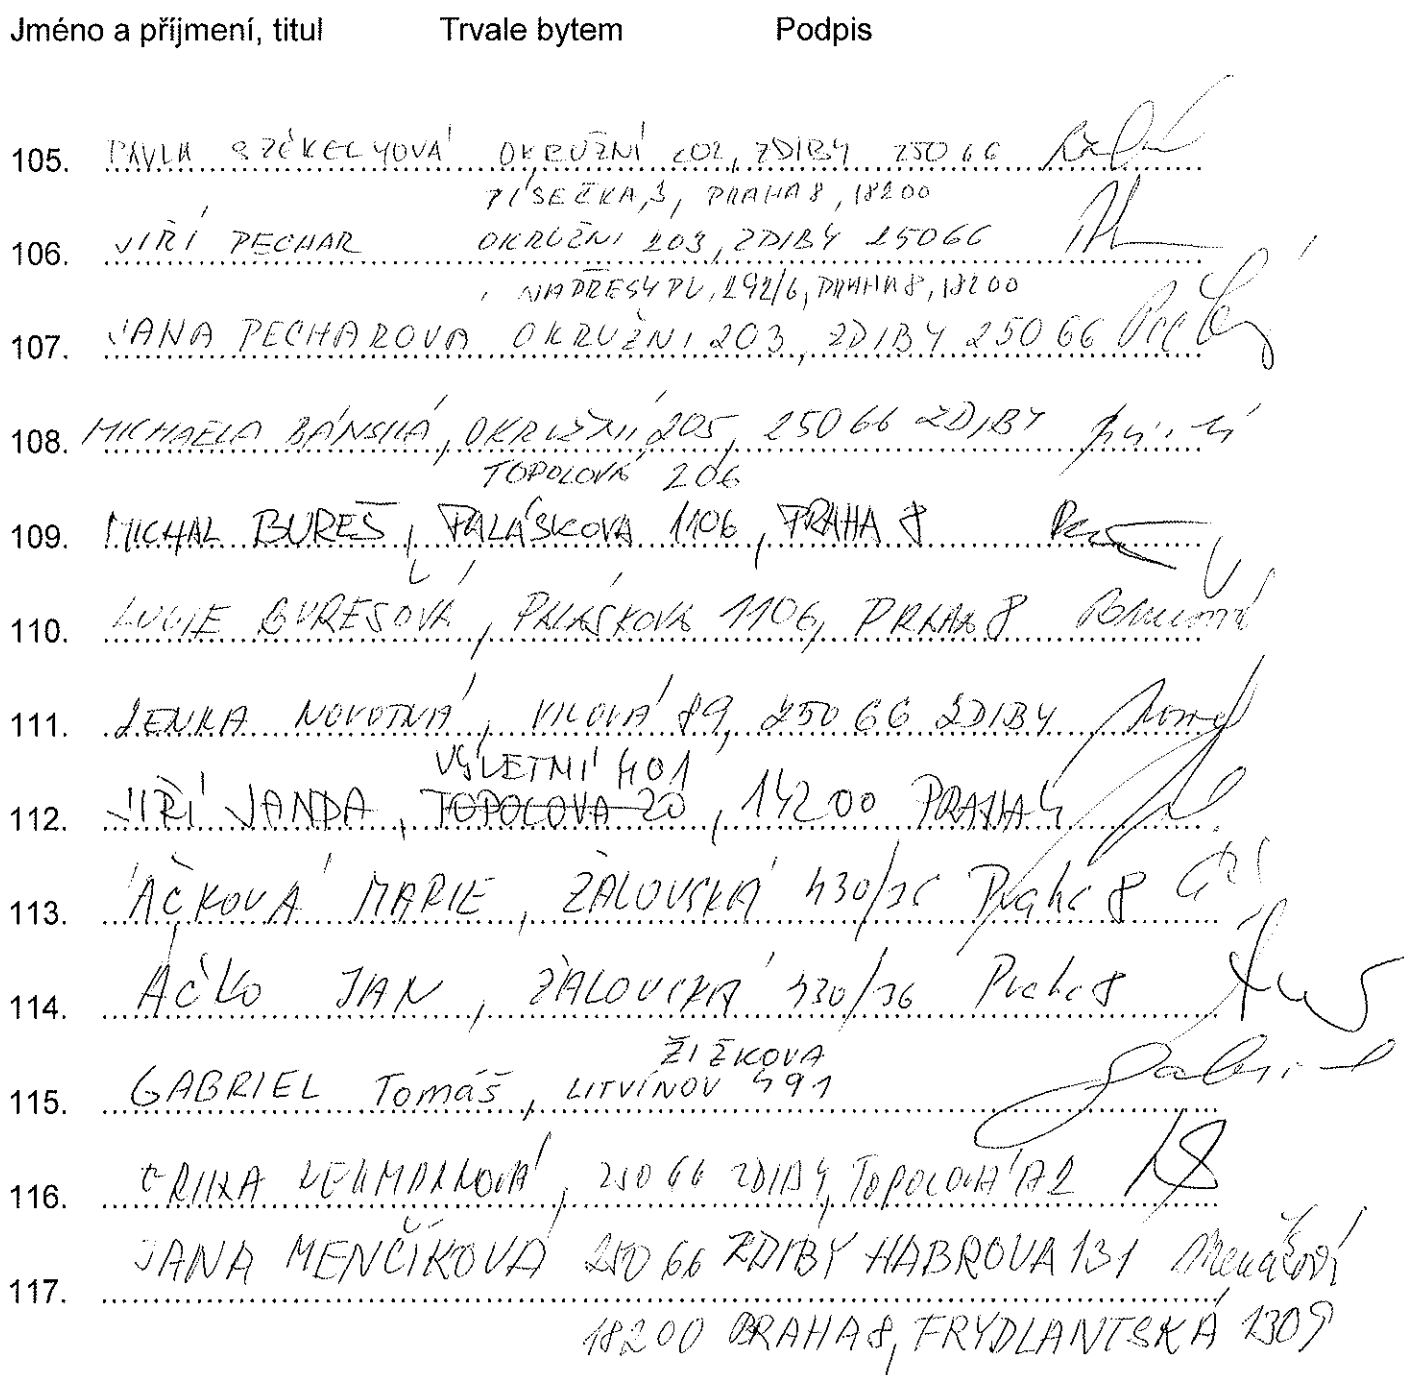 Jméno a příjmení, titul Trvale bytem Podpis
105. PAVLA SZÉKELYOVÁ OKRUŽNÍ 202, ZDIBY 250 66
PÍSEČKA, 3, PRAHA 8, 18200
106. JIŘÍ PECHAR OKRUŽNI 203, ZDIBY 25066
292/6, PRAHA 8, 18200
107. JANA PECHAROVA OKRUŽNI 203, ZDIBY 250 66
108. MICHAELA BÁNSKÁ, OKRUŽNÍ 205, 250 66 ZDIBY
TOPOLOVÁ 206
109. MICHAL BUREŠ, PALÁSKOVA 1106, PRAHA 8
110. LUCIE BUREŠOVÁ, PALÁSKOVA 1106, PRAHA 8
111. LENKA NOVOTNÁ, VILOVÁ 89, 250 66 ZDIBY
VÝLETNÍ 401
112. JIŘÍ JANDA, TOPOLOVA 20, 142 00 PRAHA 4
113. AČKOVÁ MARIE, ŽALOVSKÁ 430/36 Praha 8
114. AČKO JAN, ŽALOVSKÁ 430/36 Praha 8
ŽIŽKOVA
115. GABRIEL Tomáš, LITVÍNOV 491 Gabriel
116. ERIKA 250 66 ZDIBY, TOPOLOVÁ
117. JANA MENČÍKOVÁ 250 66 ZDIBY HABROVA 131 Menčíková
18200 PRAHA 8, FRYDLANTSKÁ 1309